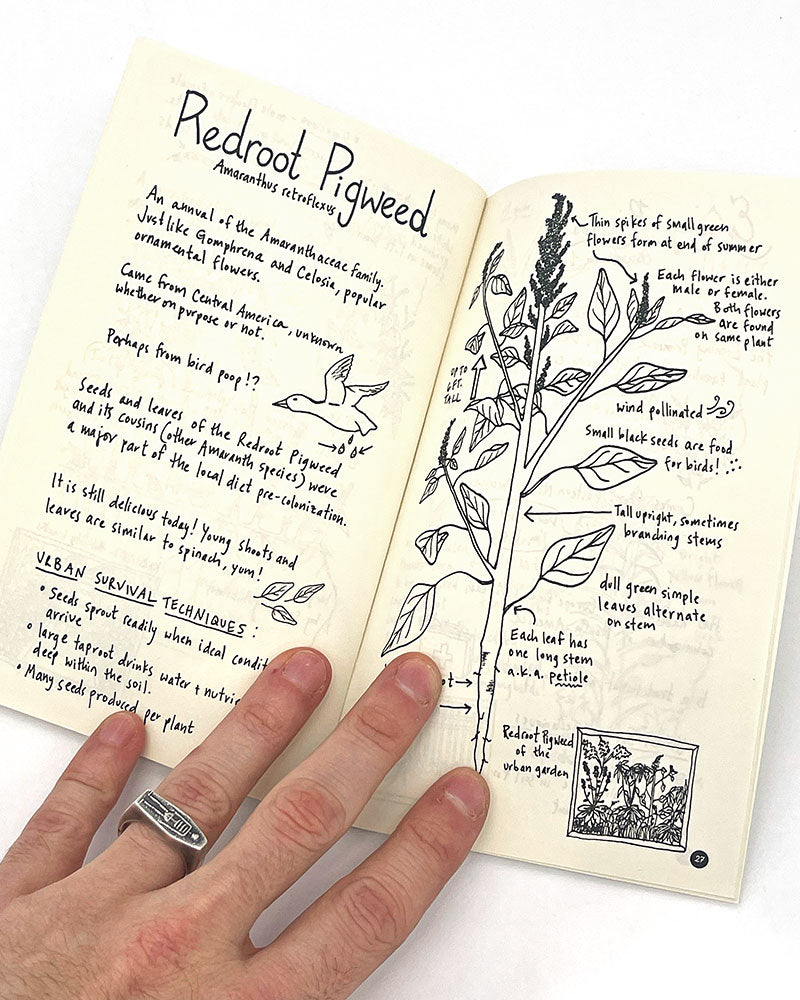 Redroot Pigweed
Amaranthus retroflexus
An annual of the Amaranthaceae family.
Just like Gomphrena and Celosia, popular
ornamental flowers.
Came from Central America, unknown
whether on purpose or not.
Perhaps from bird poop!?
Seeds and leaves of the Redroot Pigweed
and its cousins (other Amaranth species) were
a major part of the local diet pre-colonization.
It is still delicious today! Young shoots and
leaves are similar to spinach, yum!
URBAN SURVIVAL TECHNIQUES:
• Seeds sprout readily when ideal condit
arrive
• large taproot drinks water + nutrie
deep within the soil.
• Many seeds produced per plant
Thin spikes of small green
flowers form at end of summer
Each flower is either
male or female.
Both flowers
are found
on same plant
UP TO
6FT.
TALL
wind pollinated
Small black seeds are food
for birds!
Tall upright, sometimes
branching stems
dull green simple
leaves alternate
on stem
Each leaf has
one long stem
a.k.a. petiole
Redroot Pigweed
of the
urban garden
27